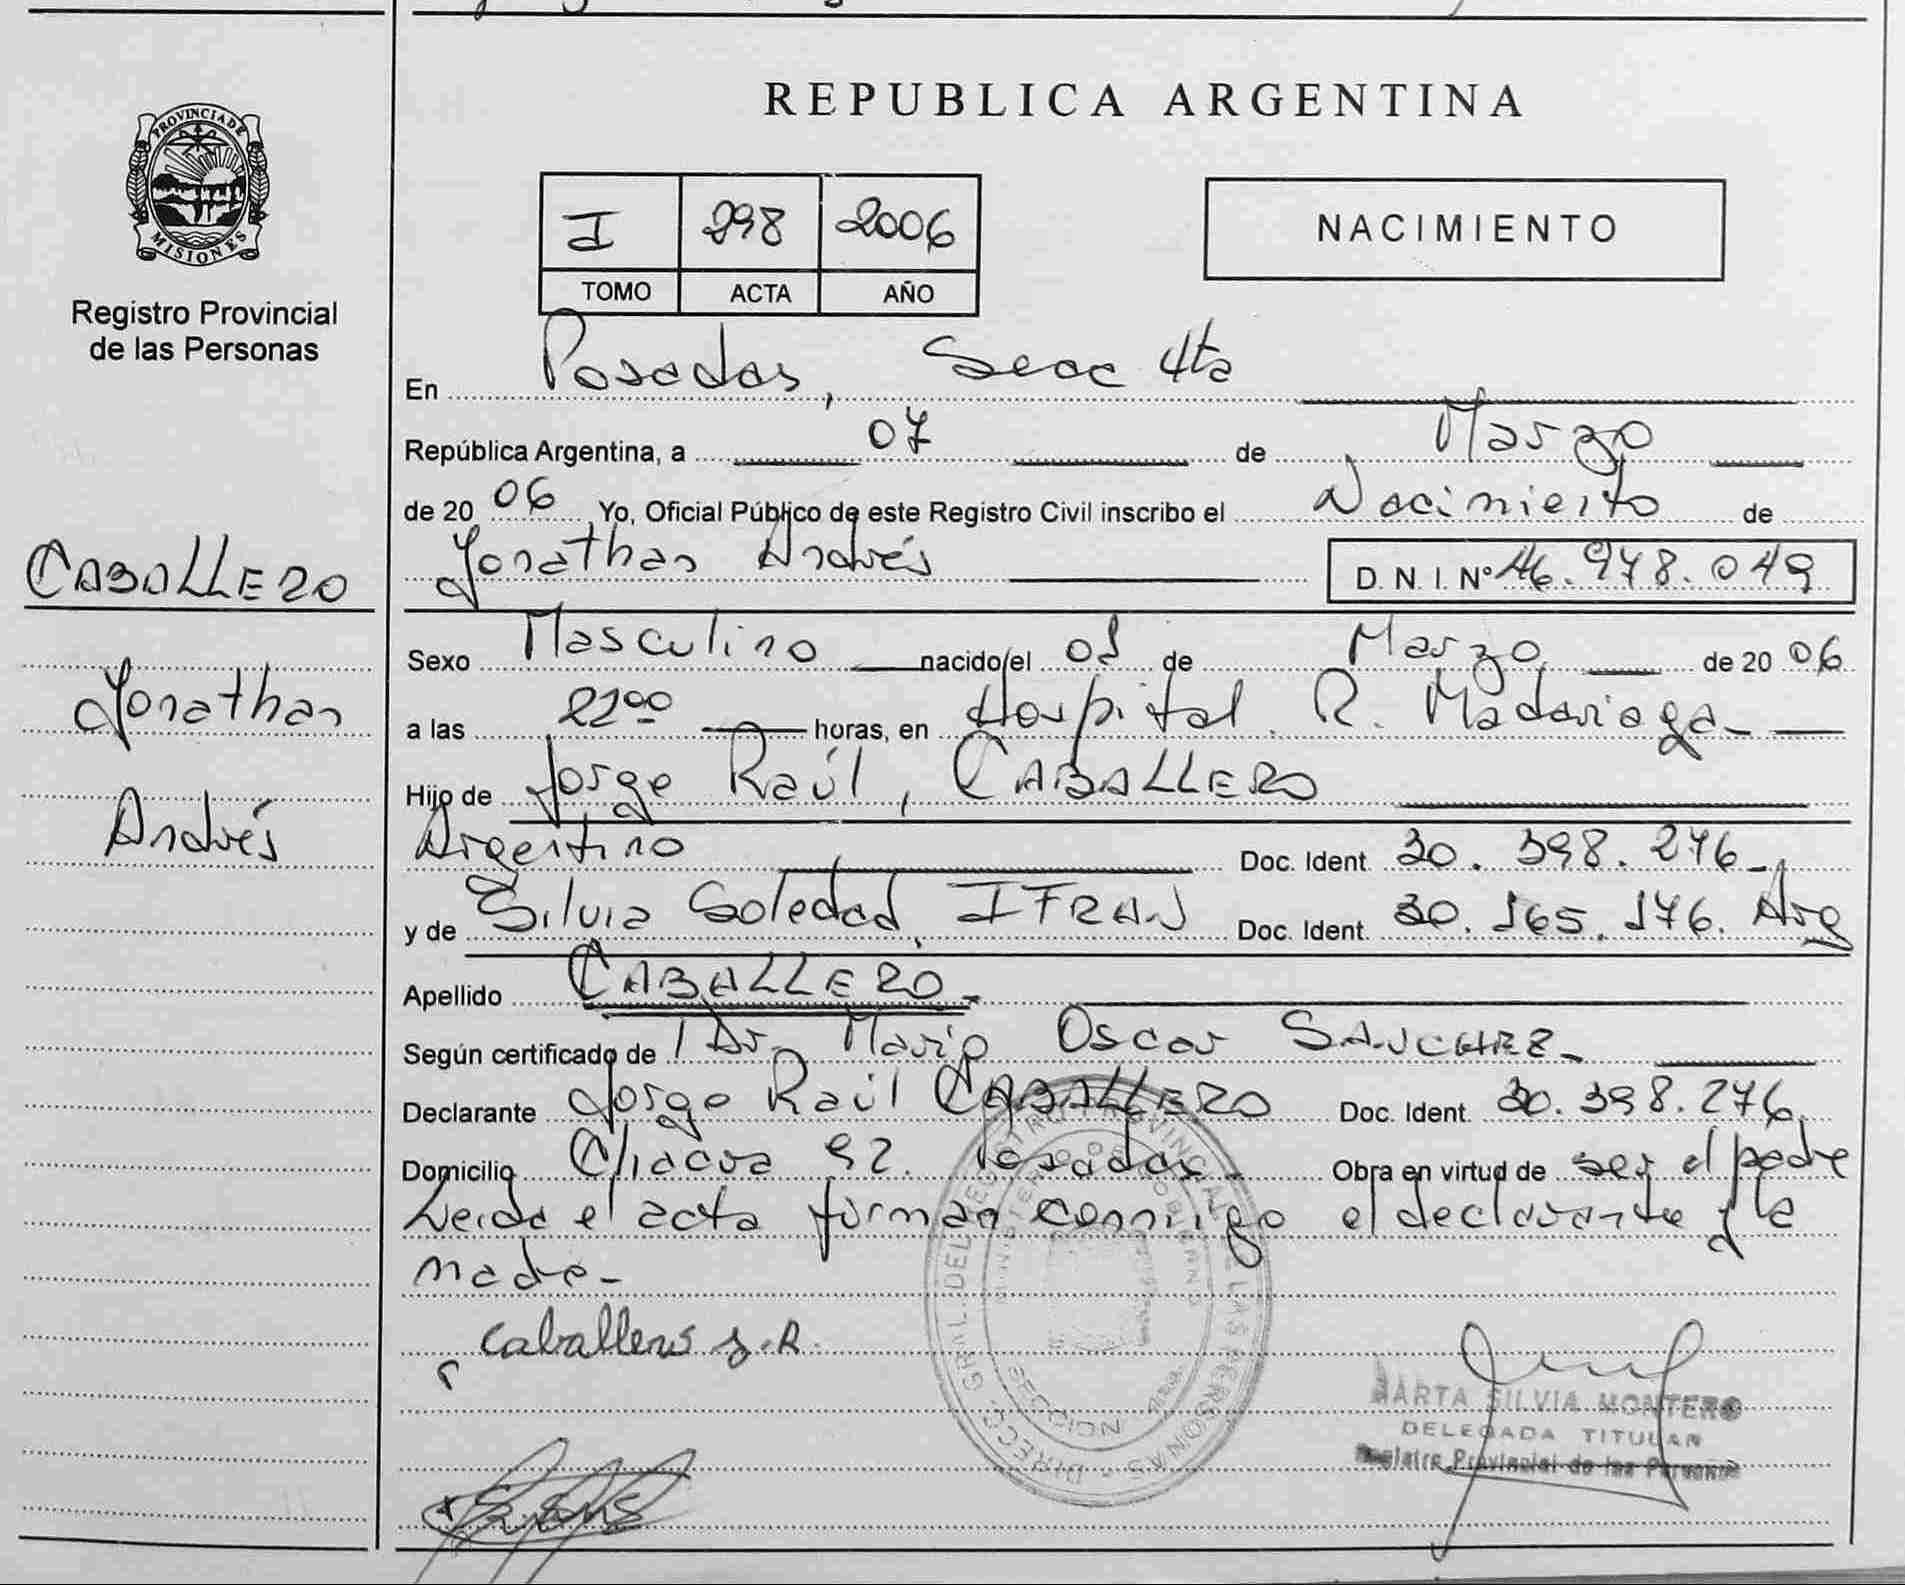 PROVINCIA DE
MISIONES
Registro Provincial
de las Personas
CABALLERO
Jonathan
Andrés
REPUBLICA ARGENTINA
I 298 2006
TOMO ACTA AÑO
NACIMIENTO
En Posadas, Secc 4ta
República Argentina, a 07 de Marzo
de 2006 Yo, Oficial Público de este Registro Civil inscribo el Nacimiento de
Jonathan Andrés D. N. I. Nº 46.978.049
Sexo Masculino nacido el 01 de Marzo de 2006
a las 22⁰⁰ horas, en Hospital R. Madariaga-
Hijo de Jorge Raúl, CABALLERO
Argentino Doc. Ident. 30.398.276-
y de Silvia Soledad, IFRAN Doc. Ident. 30.165.176. Arg
Apellido CABALLERO-
Según certificado de Dr. Mario Oscar SANCHEZ-
Declarante Jorge Raúl CABALLERO Doc. Ident. 30.398.276
Domicilio Chacra 92. Posadas- Obra en virtud de ser el padre
Leida el acta firman conmigo el declarante y la
madre-
Caballero J.R.
DIRECC. GRAL. DEL REGISTRO PROVINCIAL DE LAS PERSONAS
MINISTERIO DE GOBIERNO
SECCION 4ta
MARTA SILVIA MONTERO
DELEGADA TITULAR
Registro Provincial de las Personas